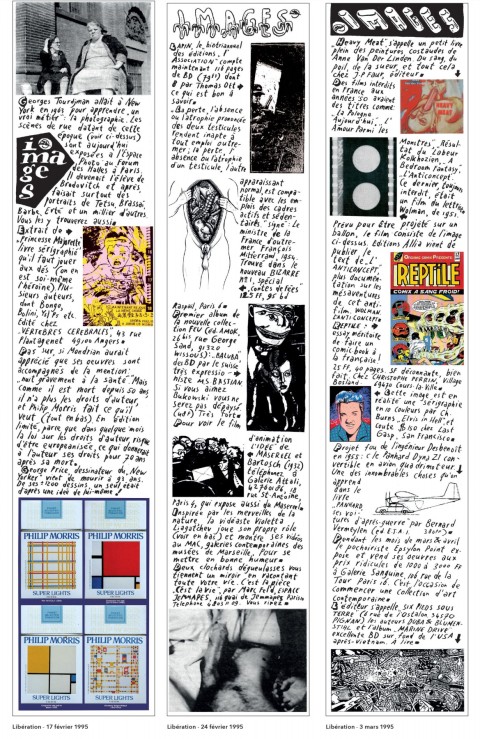 Georges Tourdjman allait à New
York en 1963 pour apprendre, un
vrai métier: la photographie. Les
scènes de rue datant de cette
époque (voir ci-dessus)
sont aujourd'hui
exposées à l'Espace
Photo du Forum
des Halles à Paris.
devenu l'élève de
Brodovitch et après
faisait surtout des
portraits de Tatou, Brassaï,
Barbe, Erté et un millier d'autres
Vous les y trouverez aussi
images
Extrait de
"Princesse Majorette"
livre sérigraphié
qu'il faut jouer
aux dés (on en
est soi-même
l'héroïne) Plu-
sieurs auteurs,
dont Bongo,
Dolini, Y5/P5 etc.
édité chez
"VERTEBRES CEREBRALES", 43 rue
Plantagenet 49100 Angers
Pas sûr si Mondrian aurait
apprécié que ses oeuvres sont
accompagnées de la mention:
"nuit gravement à la santé". Mais
comme il est mort depuis 50 ans
il n'a plus les droits d'auteur,
et Philip Morris fait ce qu'il
veut (tout en bas). En édition
limitée, parce que dans quelque mois
la loi sur les droits d'auteur risque
d'être européanisée, ce qui donnerait
à l'auteur ses droits pour 20 ans
après sa mort.
George Price, dessinateur du "New
Yorker" vient de mourir à 93 ans.
De ses 1200 dessins, un seul était
d'après une idée de lui-même!
PHILIP MORRIS
SUPER LIGHTS
PHILIP MORRIS
SUPER LIGHTS
PHILIP MORRIS
SUPER LIGHTS
PHILIP MORRIS
SUPER LIGHTS
Libération - 17 février 1995
IMAGES
LAPIN, le biotriannuel
des éditions L'
ASSOCIATION compte
maintenant 116 pages
de BD (79FF) dont
8 par Thomas Ott
ce qui est bon à
savoir
La perte, l'absence
ou l'atrophie prononcée
des deux testicules
rendent inapte à
tout emploi outre-
mer; la perte, l'
absence ou l'atrophie
d'un testicule, l'autre
apparaissant
normal, est compa-
tible avec les em-
plois des cadres
actifs et séden-
taires. signé: Le
ministre de la
France d'outre-
mer, François
Mitterrand, 1951.
Trouvé dans le
nouveau BIZARRE
N°1, spécial
"contes de fées"
125 FF, 95 bd
Raspail, Paris 6
Premier album de
la nouvelle collection
FEU (ed AMOK,
26 bis rue George
Sand, 91320
WISSOUS): "BALUBA",
des BD par le suisse
très expressio-
niste MS BASTIAN.
Si vous aimez
Bukowski vous ne
serez pas dépaysé
(49FF) Très forte
Pour voir le film
d'animation
L'IDEE de
MASEREEL et
Bartosch (1932)
téléphonez:
Galerie Attali,
42 7406 78, 18
rue St-Antoine,
Paris 4, qui expose aussi du Masereel
Inspirée par les merveilles de la
nature la vidéaste Violetta
Liagatchev joue son propre rôle
(voir en bas) et montre ses vidéos
au MAC, galeries contemporaines des
musées de Marseille, Pour se
mettre en bonne humeur
Deux clochards dégueulasses vous
tiennent un miroir en racontant
toute votre vie C'est la pièce
"C'est la vie", par Marc Feld, ESPACE
JEMMAPES, 116 quai de Jemmapes Paris
Téléphone 48051109. Vous rirez
Libération - 24 février 1995
IMAGES
"Heavy Meat", s'appelle un petit livre
plein des peintures costaudes de
Anne Van Der Linden. Du sang, du
poil, de la sueur, et tout cela
chez J-F Faur, éditeur
Des films interdits
en France aux
années 50 avaient
des titres comme
La Pologne
aujourd'hui, L'
Amour Parmi les
HEAVY
MEAT
Monstres, Résul-
tat du Labeur
Kolkhozien, A
Bedroom Fantasy,
L'Anticoncept
Ce dernier, toujours
interdit, était
un film du lettriste
Wolman, de 1951.
Prévu pour être projeté sur un
ballon, le film consiste de l'image
ci-dessus. Editions Allia vient de
publier le
texte de L'
ANTICONCEPT,
plus documen-
tation sur les
mésaventures
de cet anti-
film. WOLMAN
L'ANTICONCEPT
REPTILE:
essay méritoire
de faire un
comic book à
la française!
REPTILE
COMIX A SANG FROID!
25 FF, 40 pages. Si détonnante, bien
fait. Chez CHRISTOPHE PERRIN, Village
Bosland 69470 Cours-la-Ville
Cette image est en
réalité une sérigraphie
en 10 couleurs par Ch.
Burns, "Elvis in Hell", et
coûte $150 chez Last
Gasp, San Francisco
Projet fou de l'ingénieur Desbenoit
en 1951: le Panhard Dyna Z1 con-
vertible en avion quadrimoteur
Une des innombrables choses qu'on
apprend
dans le
livre
"PANHARD
ses voi-
tures d'après-guerre" par Bernard
Vermeylen (ed. E.T.A.I.)
Pendant les mois de mars & avril
le pochoiriste Epsylon Point ex-
pose et vend ses oeuvres aux
prix ridicules de 1000 à 2000 FF
à Galerie Sanguine, 106 rue de la
Tour Paris 16. C'est l'occasion de
commencer une collection d'art
contemporain
L'éditeur s'appelle SIX PIEDS SOUS
TERRE (6 rue de l'Ostalon 34570
PIGNAN) les auteurs DUBA & BLUMEN-
STIHL et l'album, MARINE DRIVE
excellente BD sur fond de l'USA
après-Vietnam. A lire
Libération - 3 mars 1995